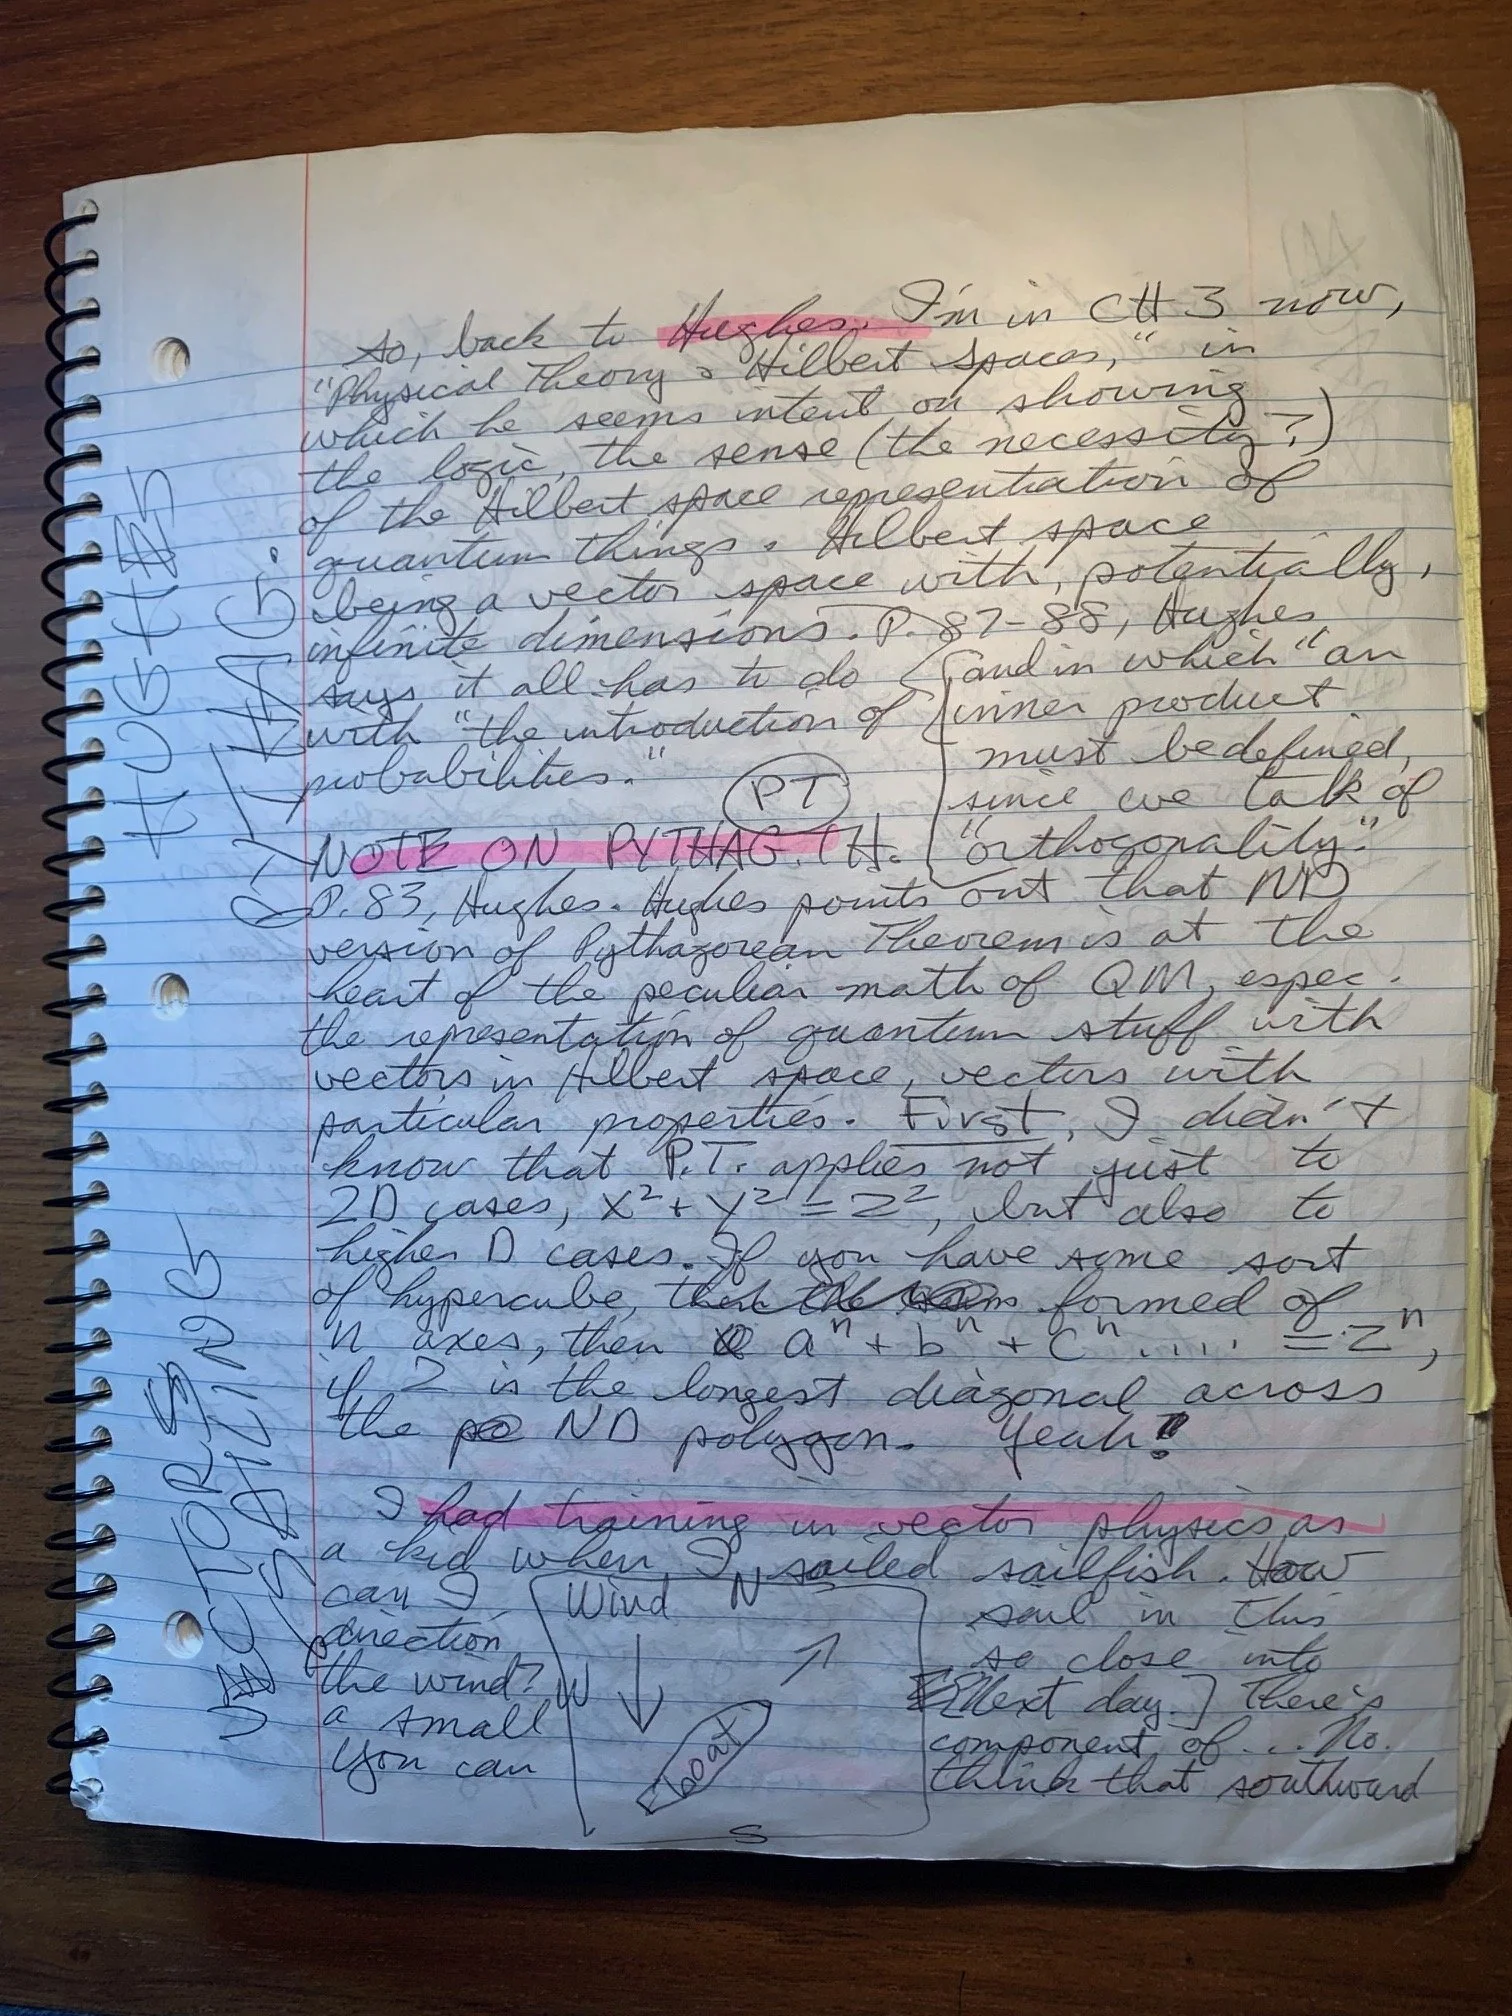 So, back to Hughes. I'm in CH 3 now,
"Physical Theory & Hilbert Spaces," in
which he seems intent on showing
the logic, the sense (the necessity?)
of the Hilbert space representation of
quantum things. Hilbert space
being a vector space with, potentially,
infinite dimensions. P. 87-88, Hughes
says it all has to do
with "the introduction of
probabilities."
{and in which "an
inner product
must be defined,
since we talk of
"orthogonality."
PT
NOTE ON PYTHAG. TH.
P. 83, Hughes. Hughes points out that ND
version of Pythagorean Theorem is at the
heart of the peculiar math of QM, espec.
the representation of quantum stuff with
vectors in Hilbert space, vectors with
particular properties. First, I didn't
know that P.T. applies not just to
2D cases, x² + y² = z², but also to
higher D cases. If you have some sort
of hypercube, formed of
n axes, then aⁿ + bⁿ + cⁿ ..... = zⁿ,
if Z is the longest diagonal across
the ND polygon. Yeah!
I had training in vector physics as
a kid when I sailed sailfish. How
can I sail in this
direction so close into
the wind? [Next day.] There's
a small component of ... No.
You can think that southward
Wind N
W
boat
S
HUGHES
PYTHAG:
VECTORS
/SAILING